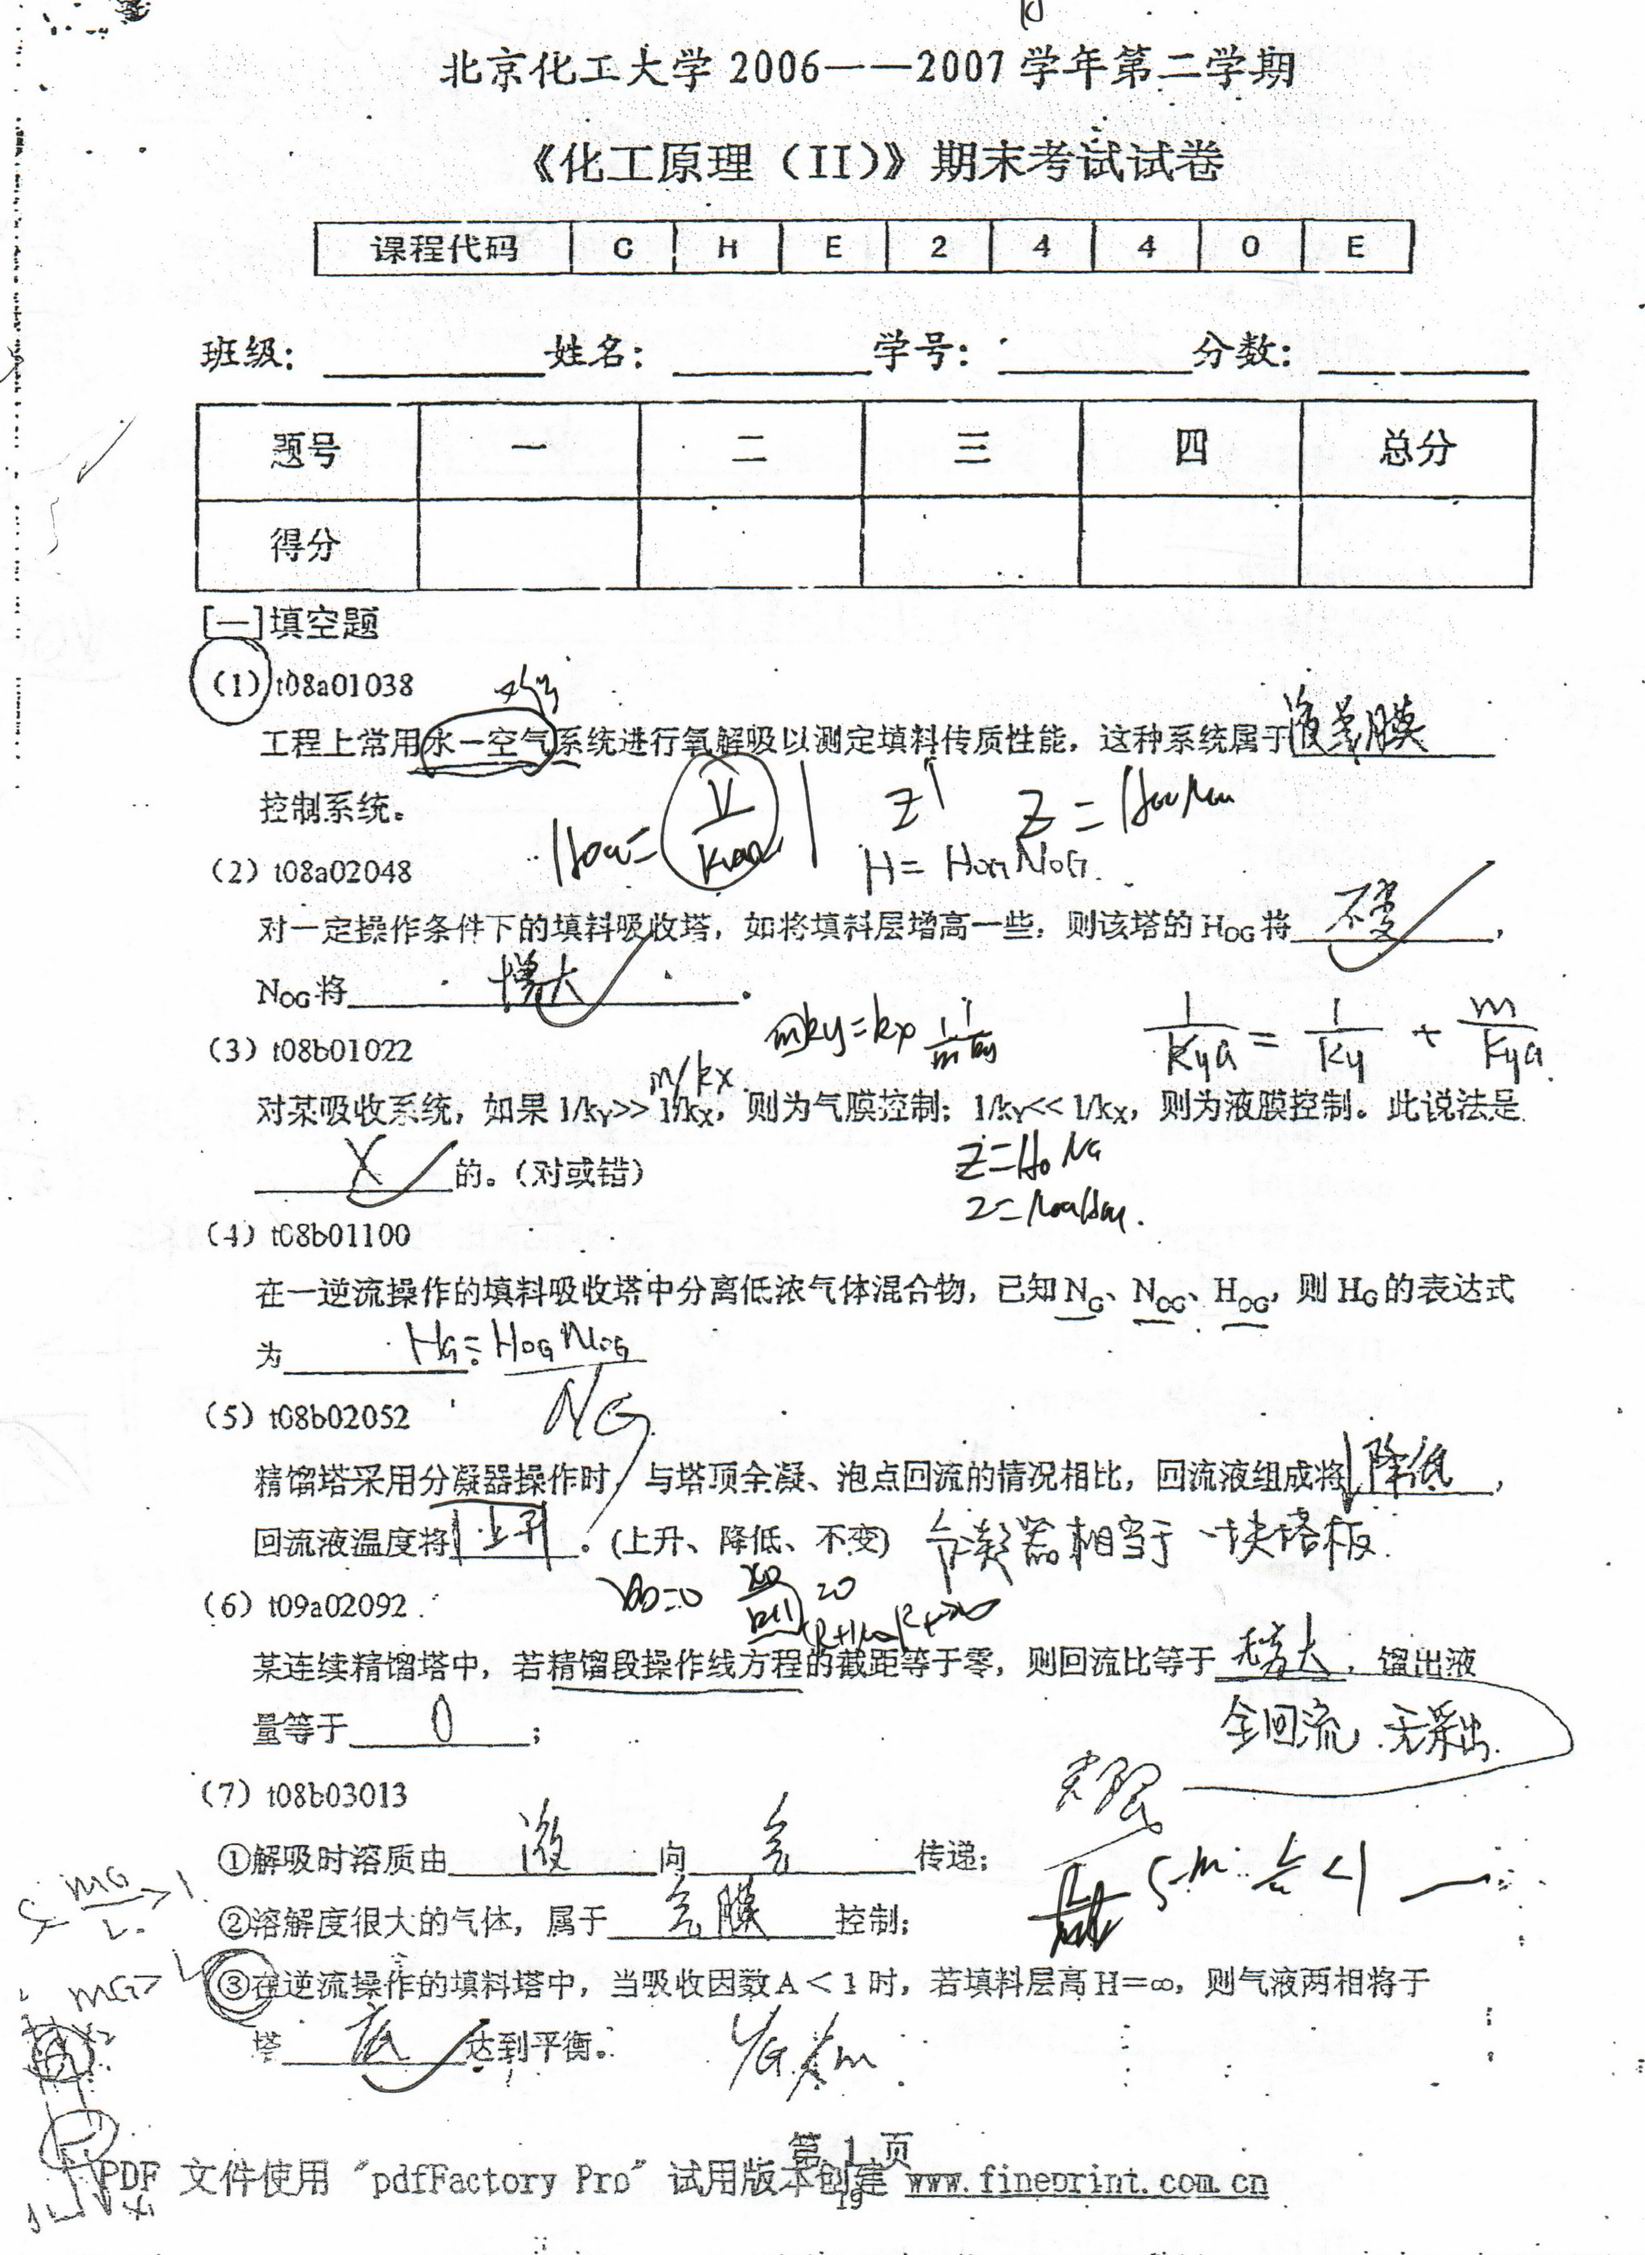 北京化工大学 2006——2007 学年第二学期
《化工原理（II）》期末考试试卷
课程代码 C H E 2 4 4 0 E
班级： 姓名： 学号： 分数：
题号 一 二 三 四 总分
得分
[一]填空题
（1）t08a01038
工程上常用水－空气系统进行氧解吸以测定填料传质性能，这种系统属于液膜
控制系统。
Z = H = HOG NOG.
（2）t08a02048
对一定操作条件下的填料吸收塔，如将填料层增高一些，则该塔的 HOG 将 不变 ，
NOG 将 增大 。
（3）t08b01022
mky=kx
1/Kya = 1/ky + m/Kya
m/kx
对某吸收系统，如果 1/kY>> 1/kX，则为气膜控制；1/kY<< 1/kX，则为液膜控制。此说法是
X 的。（对或错）
（4）t08b01100
在一逆流操作的填料吸收塔中分离低浓气体混合物，已知 NG、NOG、HOG，则 HG 的表达式
为 HG = HOG NOG / NG
（5）t08b02052
精馏塔采用分凝器操作时，与塔顶全凝、泡点回流的情况相比，回流液组成将 降低 ，
回流液温度将 上升 。(上升、降低、不变) 分凝器相当于一块塔板.
（6）t09a02092
某连续精馏塔中，若精馏段操作线方程的截距等于零，则回流比等于 无穷大 ，馏出液
量等于 0 ；
全回流，无采出.
（7）t08b03013
①解吸时溶质由 液 向 气 传递；
②溶解度很大的气体，属于 气膜 控制；
③在逆流操作的填料塔中，当吸收因数 A＜1 时，若填料层高 H＝∞，则气液两相将于
塔 底 达到平衡。
第 1 页
PDF 文件使用 "pdfFactory Pro" 试用版本创建 www.fineprint.com.cn
19